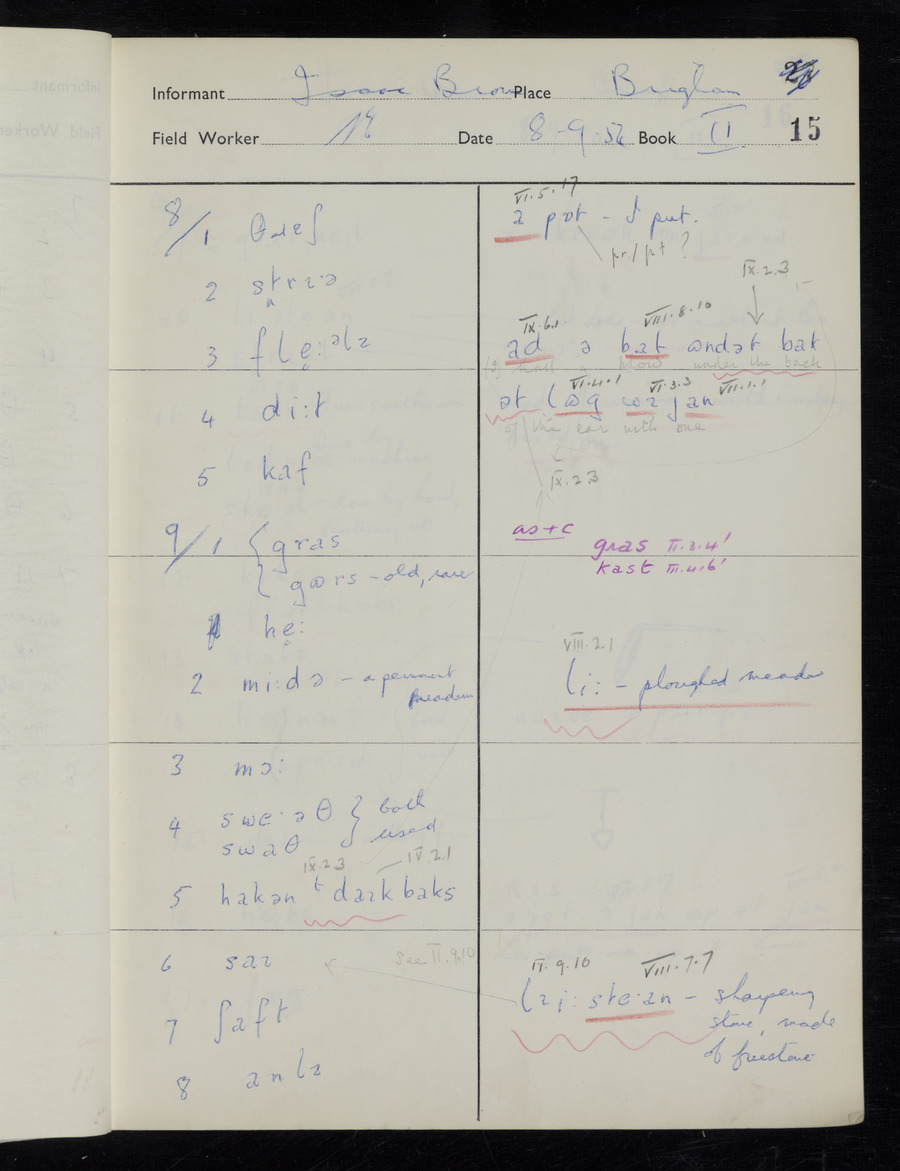 Informant Isaac Brown Place Brigham
Field Worker Date 8-9-56 Book II 15
8/1 θɹeʃ
2
3
4 di:t
5 kaf
9/1 gras
gɷrs - old, rare
he̞:
2 mi:də - a permanent
meadow
3 mɔ:
4 swe·əθ } both
swaθ used
IX.2.3 IV.2.1
5 hakən t daɪk baks
6 saɪ See II.9.10
7 ʃaft
8
VI.5.17
a pɷt - I put.
pr/pt ?
IX.2.3
IX.6.1 VIII.8.10
ad ə bat ɷndət bak
(I) had a blow under the back
VI.4.1 VI.3.3 VII.1.1
ət lɷg wɪ jan
of the ear with one
IX.2.3
as+c
gras II.3.4'
kast III.4.6'
VIII.2.1
li: - ploughed meadow
II.9.10 VIII.7.7
ste·ən - sharpening
stone, made
of freestone